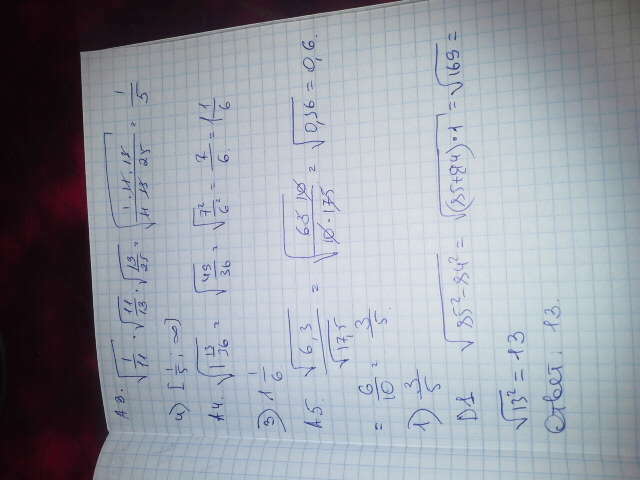 А3. √(1/11) · √(11/13) · √(13/25) = √((1·11·13)/(11 13 25)) = 1/5
4) [1/5; ∞]
А4. √(1 13/36) = √(49/36) = √(7²/6²) = 7/6 = 1 1/6
3) 1 1/6
А5. √6,3/√17,5 = √((63·10)/(10·175)) = √0,36 = 0,6.
= 6/10 = 3/5.
1) 3/5
D1 √(85²-84²) = √((85+84)·1) = √169 =
√13² = 13
Ответ: 13.